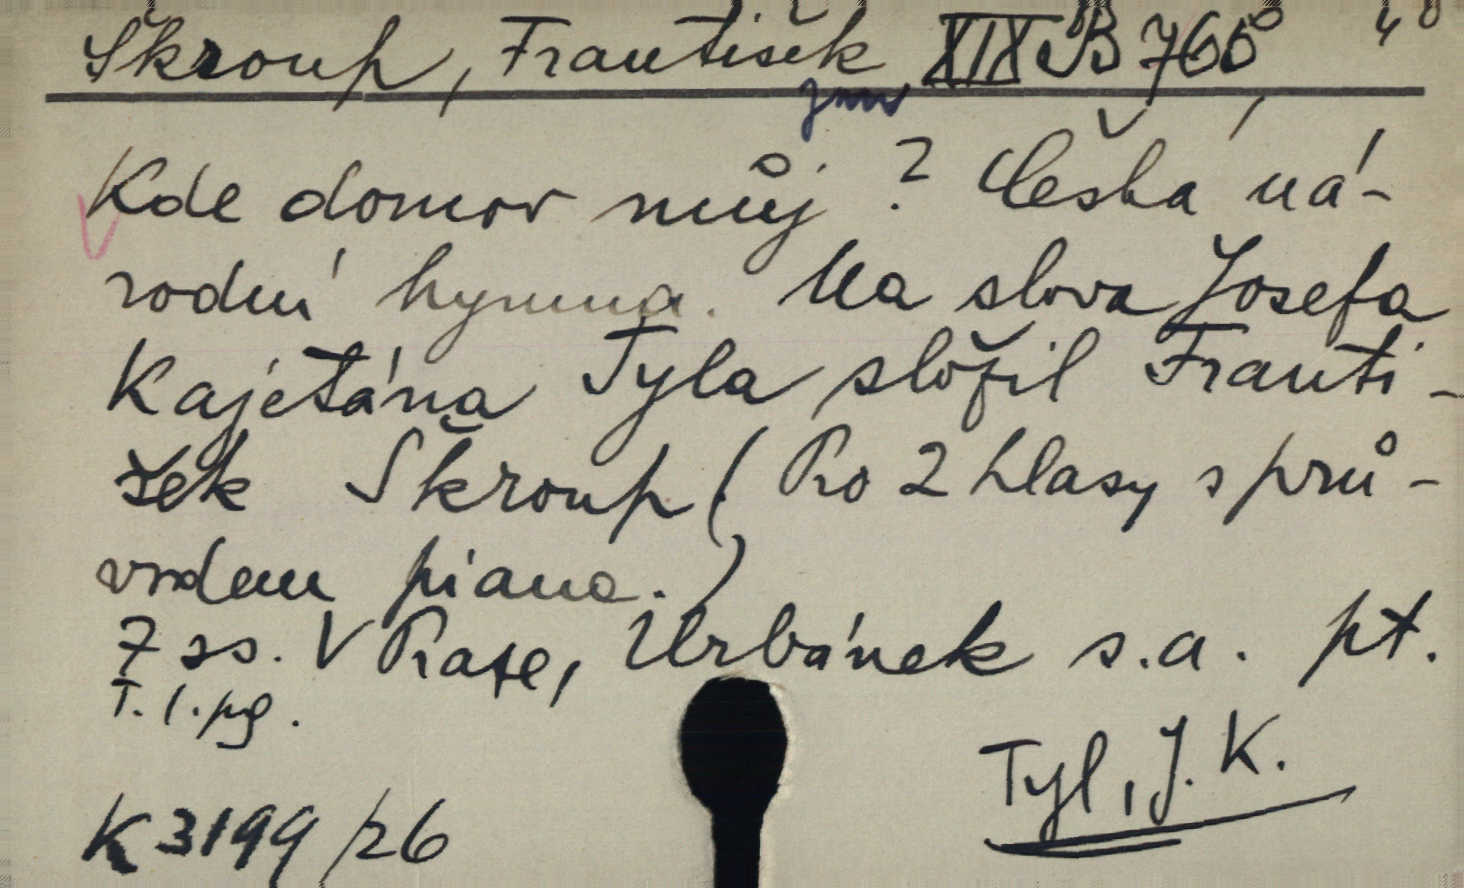 Škroup, František XIX B 766 4°
Kde domov můj? Česká ná-
rodní hymna. Na slova Josefa
Kajetána Tyla složil Franti-
šek Škroup (Pro 2 hlasy s prů-
vodem piana.)
7 ss. V Praze, Urbánek s.a. pt.
T. 1. pg.
Tyl, J. K.
K 3199/26